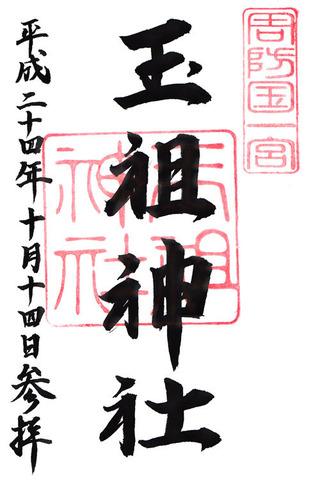 周防国一宮
玉祖神社
玉祖
神社
平成二十四年十月十四日参拝